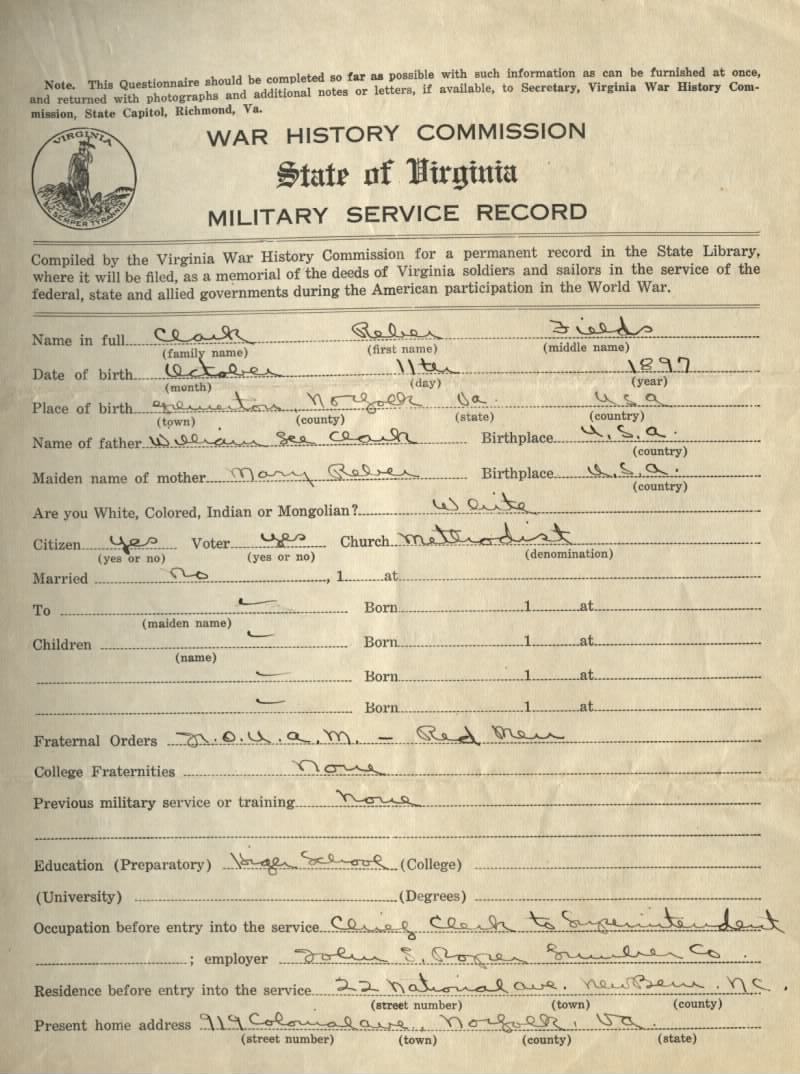 Note. This Questionnaire should be completed so far as possible with such information as can be furnished at once,
and returned with photographs and additional notes or letters, if available, to Secretary, Virginia War History Com-
mission, State Capitol, Richmond, Va.
VIRGINIA
SIC SEMPER TYRANNIS
WAR HISTORY COMMISSION
State of Virginia
MILITARY SERVICE RECORD
Compiled by the Virginia War History Commission for a permanent record in the State Library,
where it will be filed, as a memorial of the deeds of Virginia soldiers and sailors in the service of the
federal, state and allied governments during the American participation in the World War.
Name in full Clark Fields
(family name) (first name) (middle name)
Date of birth October 11th 1897
(month) (day) (year)
Place of birth Norfolk Va. U.S.A
(town) (county) (state) (country)
Name of father William Lee Clark Birthplace U.S.A.
(country)
Maiden name of mother Mary Birthplace U.S.A.
(country)
Are you White, Colored, Indian or Mongolian? White
Citizen yes Voter yes Church Methodist
(yes or no) (yes or no) (denomination)
Married No , 1 at
To Born 1 at
(maiden name)
Children Born 1 at
(name)
Born 1 at
Born 1 at
Fraternal Orders J.O.U.A.M. — Red Men
College Fraternities None
Previous military service or training None
Education (Preparatory) High School (College)
(University) (Degrees)
Occupation before entry into the service Chief Clerk to Superintendent
; employer John L. Roper Lumber Co.
Residence before entry into the service 22 National ave. New Bern. NC.
(street number) (town) (county)
Present home address 919 Colonial ave., Norfolk, Va.
(street number) (town) (county) (state)